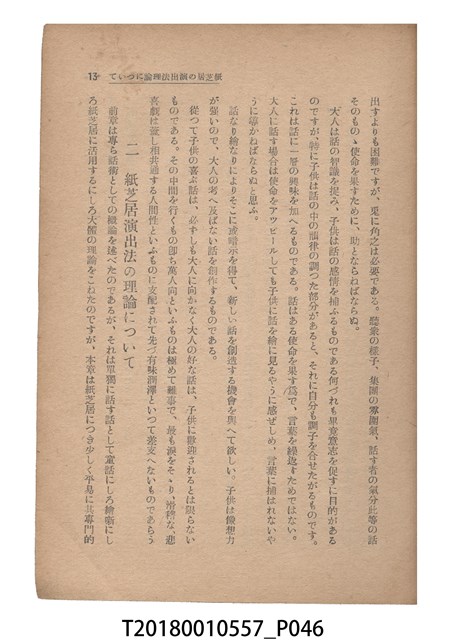 紙芝居の演出法理論について 13
出すよりも困難ですが、兎に角之は必要である。聽衆の樣子、集團の雰圍氣、話す者の氣分此等の話
そのもの、使命を果すために、助とならねばならぬ。
大人は話の智識を捉み、子供は話の感情を捕ふるものである何づれも畢意意志を促すに目的がある
のですが、特に子供は話の中の韻律の調つた部分があると、それに自分も調子を合せたがるものです。
これは話に一層の興味を加へるものである。話はある使命を果す爲で、言葉を繰返すためではない。
大人に話す場合は使命をアツピールしても子供に話を繪に見るやうに感ぜしめ、言葉に捕はれないや
うに導かねばならぬと思ふ。
話なり繪なりによりそこに或暗示を得て、新しい話を創造する機會を與へて欲しい。子供は像想力
が強いので、大人の考へ及ばない話を創作するものである。
從つて子供の喜ぶ話は、必ずしも大人に向かなく大人の好な話は、子供に歡迎されるとは限らない
ものである。その中間を行くもの卽ち萬人向といふものは極めて難事で、最も淚をそゝり、滑稽な、悲
喜劇は蓋し相共通する人間性といふものに支配されて先づ有味潤澤といつて差支へないものであらう
二 紙芝居演出法の理論について
前章は專ら話術としての概論を述べたのであるが、それは單獨に話す話として童話にしろ繪噺にし
ろ紙芝居に活用するにしろ大體の理論をこねたのですが、本章は紙芝居につき少しく平易に其專門的
T20180010557_P046